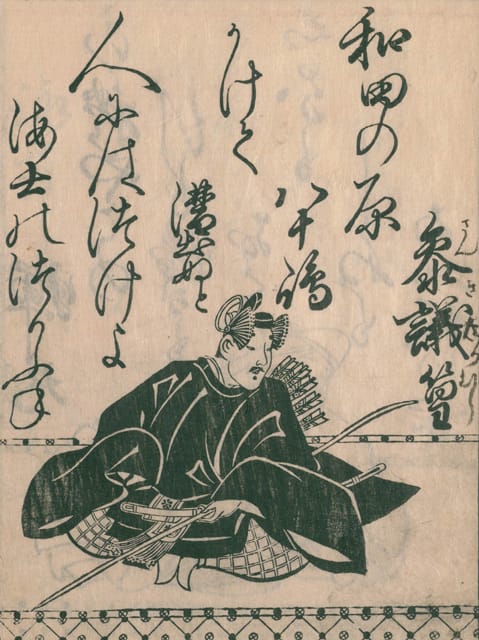 參議篁
さんきたかむら
和田の原
八十嶋
かけて
漕出ぬと
人にはつけよ
海士のつりふね